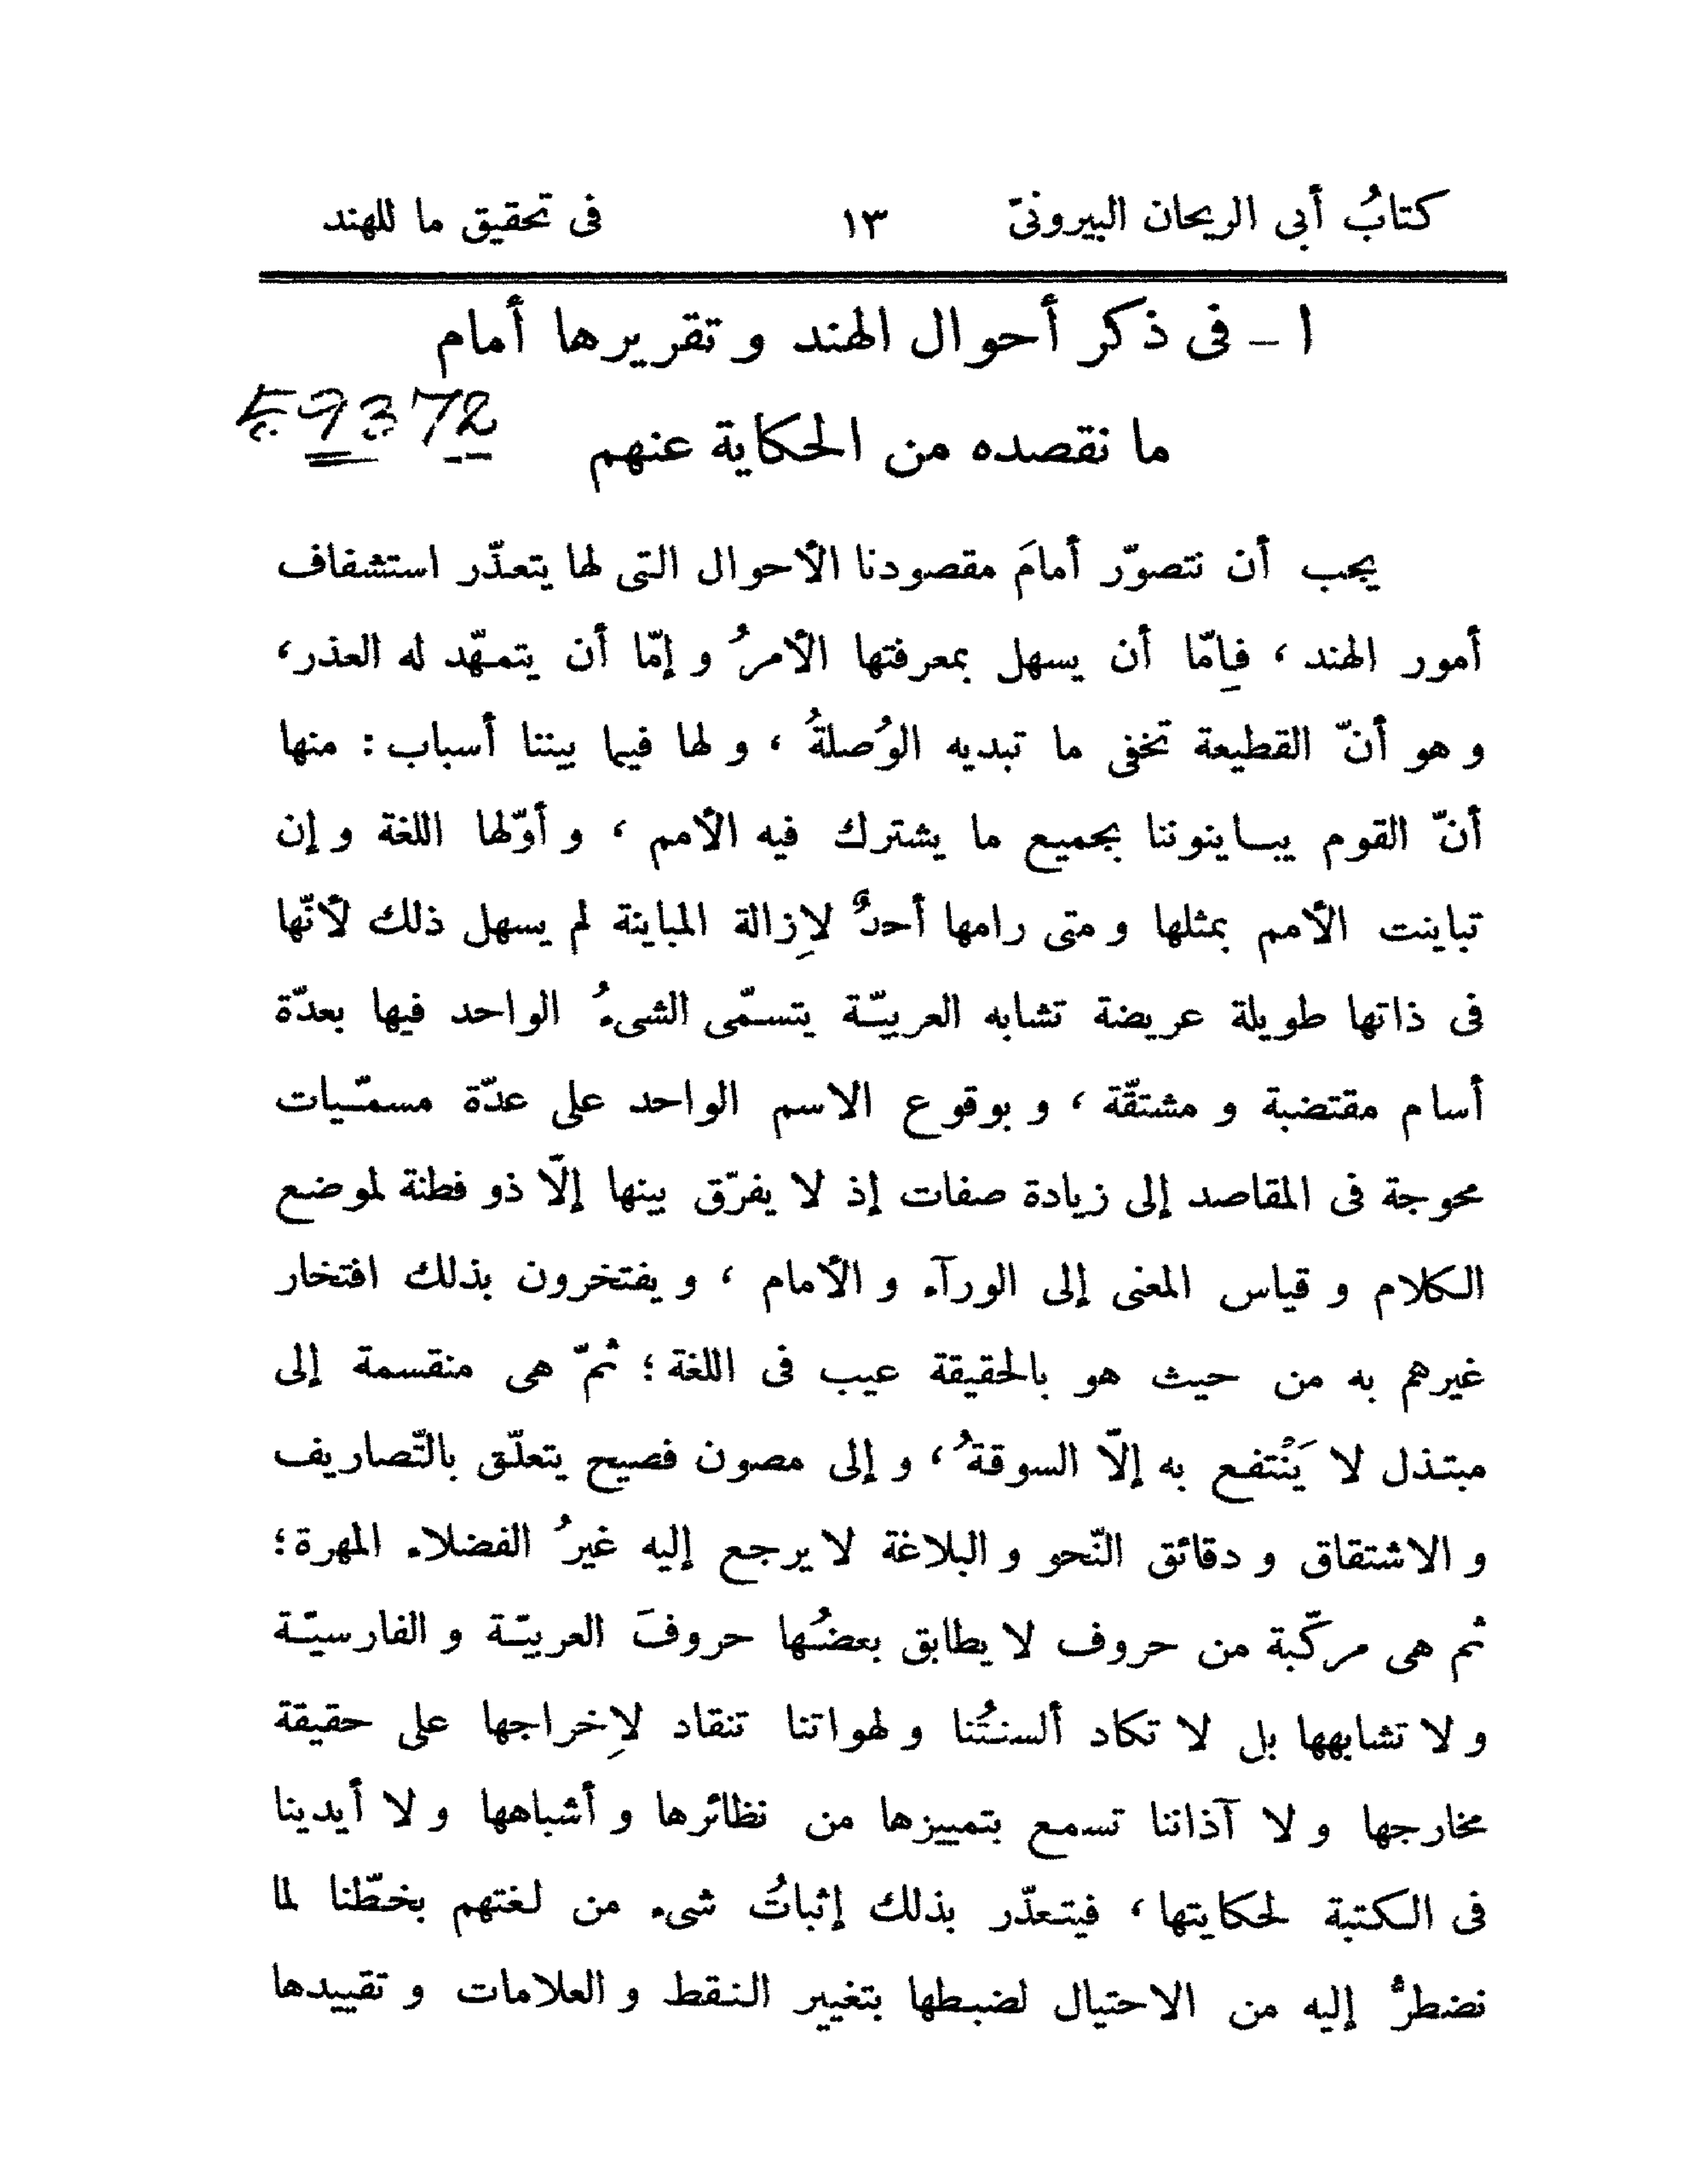 كتابُ أبى الريحان البيرونىّ ١٣ فى تحقيق ما للهند
١ – فى ذكر أحوال الهند و تقريرها أمام
59372
ما نقصده من الحكاية عنهم
يجب أن نتصوّر أمامَ مقصودنا الأحوال التى لها يتعذّر استشفاف
أمور الهند ، فإمّا أن يسهل بمعرفتها الأمرُ و إمّا أن يتمهّد له العذر،
و هو أنّ القطيعة تخفى ما تبديه الوُصلةُ ، و لها فيما بيننا أسباب : منها
أنّ القوم يباينوننا بجميع ما يشترك فيه الأمم ، و أوّلها اللغة و إن
تباينت الأمم بمثلها و متى رامها أحدٌ لإزالة المباينة لم يسهل ذلك لأنّها
فى ذاتها طويلة عريضة تشابه العربيّة يتسمّى الشىءُ الواحد فيها بعدّة
أسام مقتضبة و مشتقّة ، و بوقوع الاسم الواحد على عدّة مسمّيات
محوجة فى المقاصد إلى زيادة صفات إذ لا يفرّق بينها إلّا ذو فطنة لموضع
الكلام و قياس المعنى إلى الورآء و الأمام ، و يفتخرون بذلك افتخار
غيرهم به من حيث هو بالحقيقة عيب فى اللغة ؛ ثمّ هى منقسمة إلى
مبتذل لا يَنْتفع به إلّا السوقةُ ، و إلى مصون فصيح يتعلّق بالتّصاريف
و الاشتقاق و دقائق النّحو و البلاغة لا يرجع إليه غيرُ الفضلاء المهرة ؛
ثم هى مركّبة من حروف لا يطابق بعضُها حروفَ العربيّة و الفارسيّة
و لا تشابهها بل لا تكاد ألسنتُنا و لهواتنا تنقاد لإخراجها على حقيقة
مخارجها و لا آذاننا تسمع بتمييزها من نظائرها و أشباهها و لا أيدينا
فى الكتبة لحكايتها ، فيتعذّر بذلك إثباتُ شىء من لغتهم بخطّنا لما
نضطرُّ إليه من الاحتيال لضبطها بتغيير النقط و العلامات و تقييدها